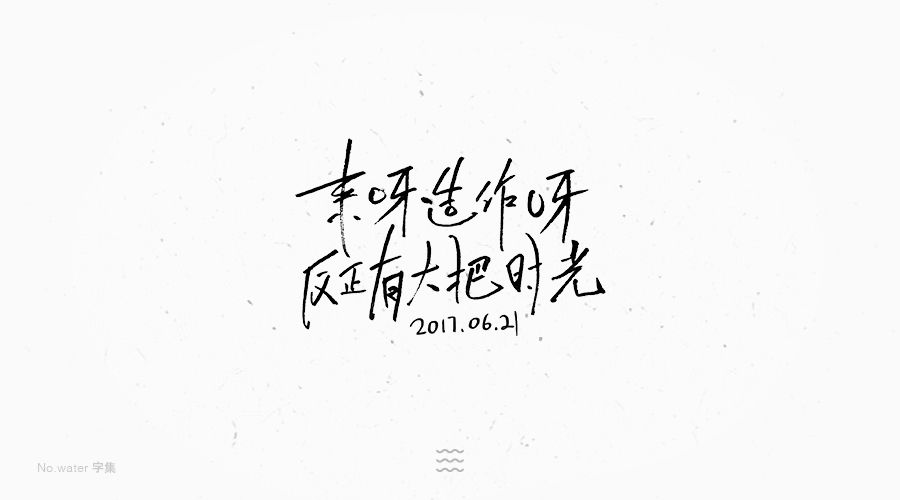 来呀造作呀
反正有大把时光
2017.06.21
No.water 字集